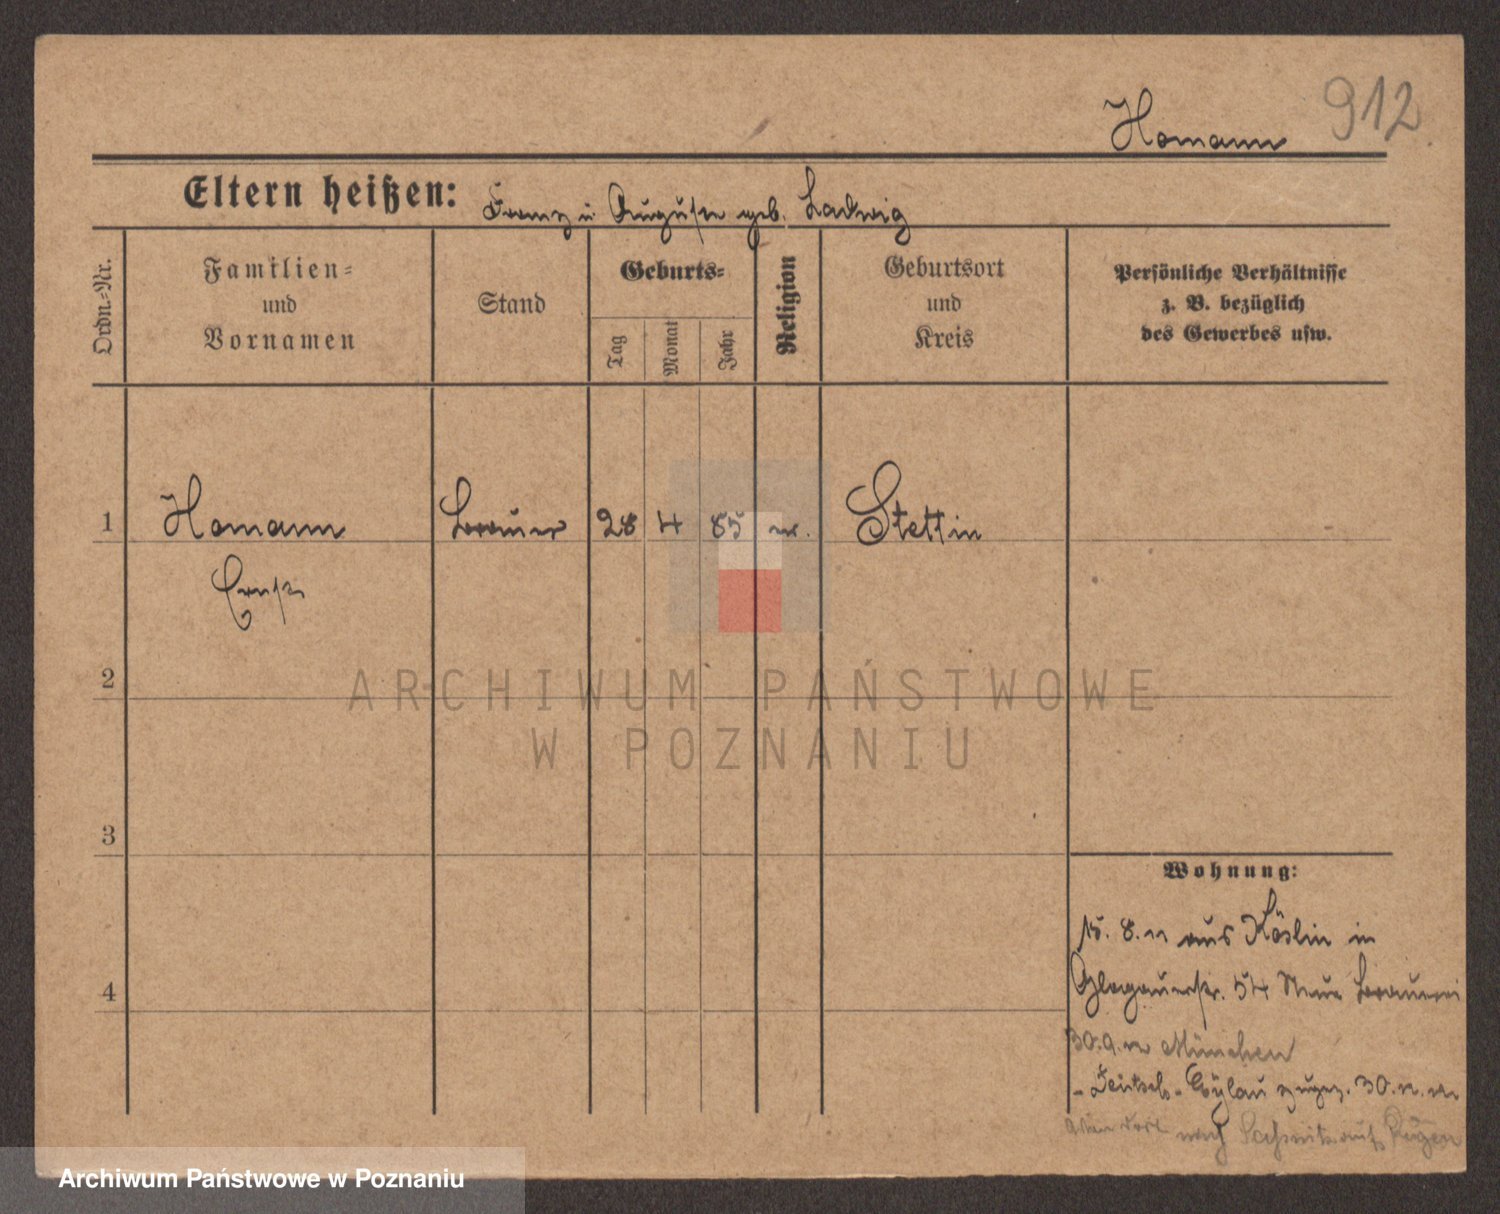 912
Homann
Eltern heißen: Franz u Auguste geb. Ladwig
Ordn.-Nr.
Familien-
und
Vornamen
Stand
Geburts-
Tag
Monat
Jahr
Religion
Geburtsort
und
Kreis
Persönliche Verhältnisse
z. B. bezüglich
des Gewerbes usw.
1 Homann Brauer 28 4 85 ev. Stettin
Ernst
2
ARCHIWUM PAŃSTWOWE
W POZNANIU
3
Wohnung:
15. 8. 11 aus Köslin in
4
Glogauerstr. 54 Neue Brauerei
30.9. München
Deutsch-Eylau zugez. 30.
nach Sassnitz auf Rügen
Archiwum Państwowe w Poznaniu